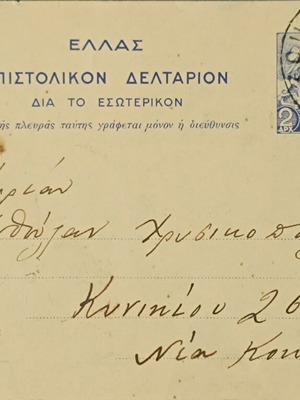 ΕΛΛΑΣ
ΠΙΣΤΟΛΙΚΟΝ ΔΕΛΤΑΡΙΟΝ
ΔΙΑ ΤΟ ΕΣΩΤΕΡΙΚΟΝ
ῆς πλευρᾶς ταύτης γράφεται μόνον ἡ διεύθυνσις
2
ρίαν
Χρυσικοπ
Κυνικίου 26
Νία Κου